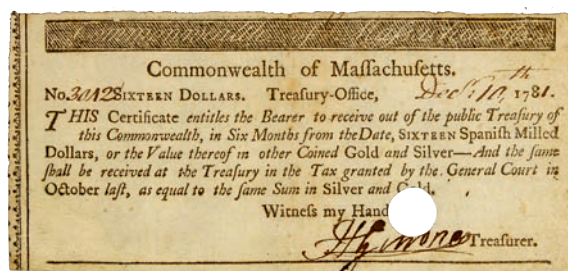 Commonwealth of Maſſachuſetts.
No. 3012 SIXTEEN DOLLARS. Treaſury-Office, Decr. 10th 1781.
THIS Certificate entitles the Bearer to receive out of the public Treaſury of
this Commonwealth, in Six Months from the Date, SIXTEEN Spaniſh Milled
Dollars, or the Value thereof in other Coined Gold and Silver—And the ſame
ſhall be received at the Treaſury in the Tax granted by the General Court in
October laſt, as equal to the ſame Sum in Silver and Gold.
Witneſs my Hand
Treaſurer.